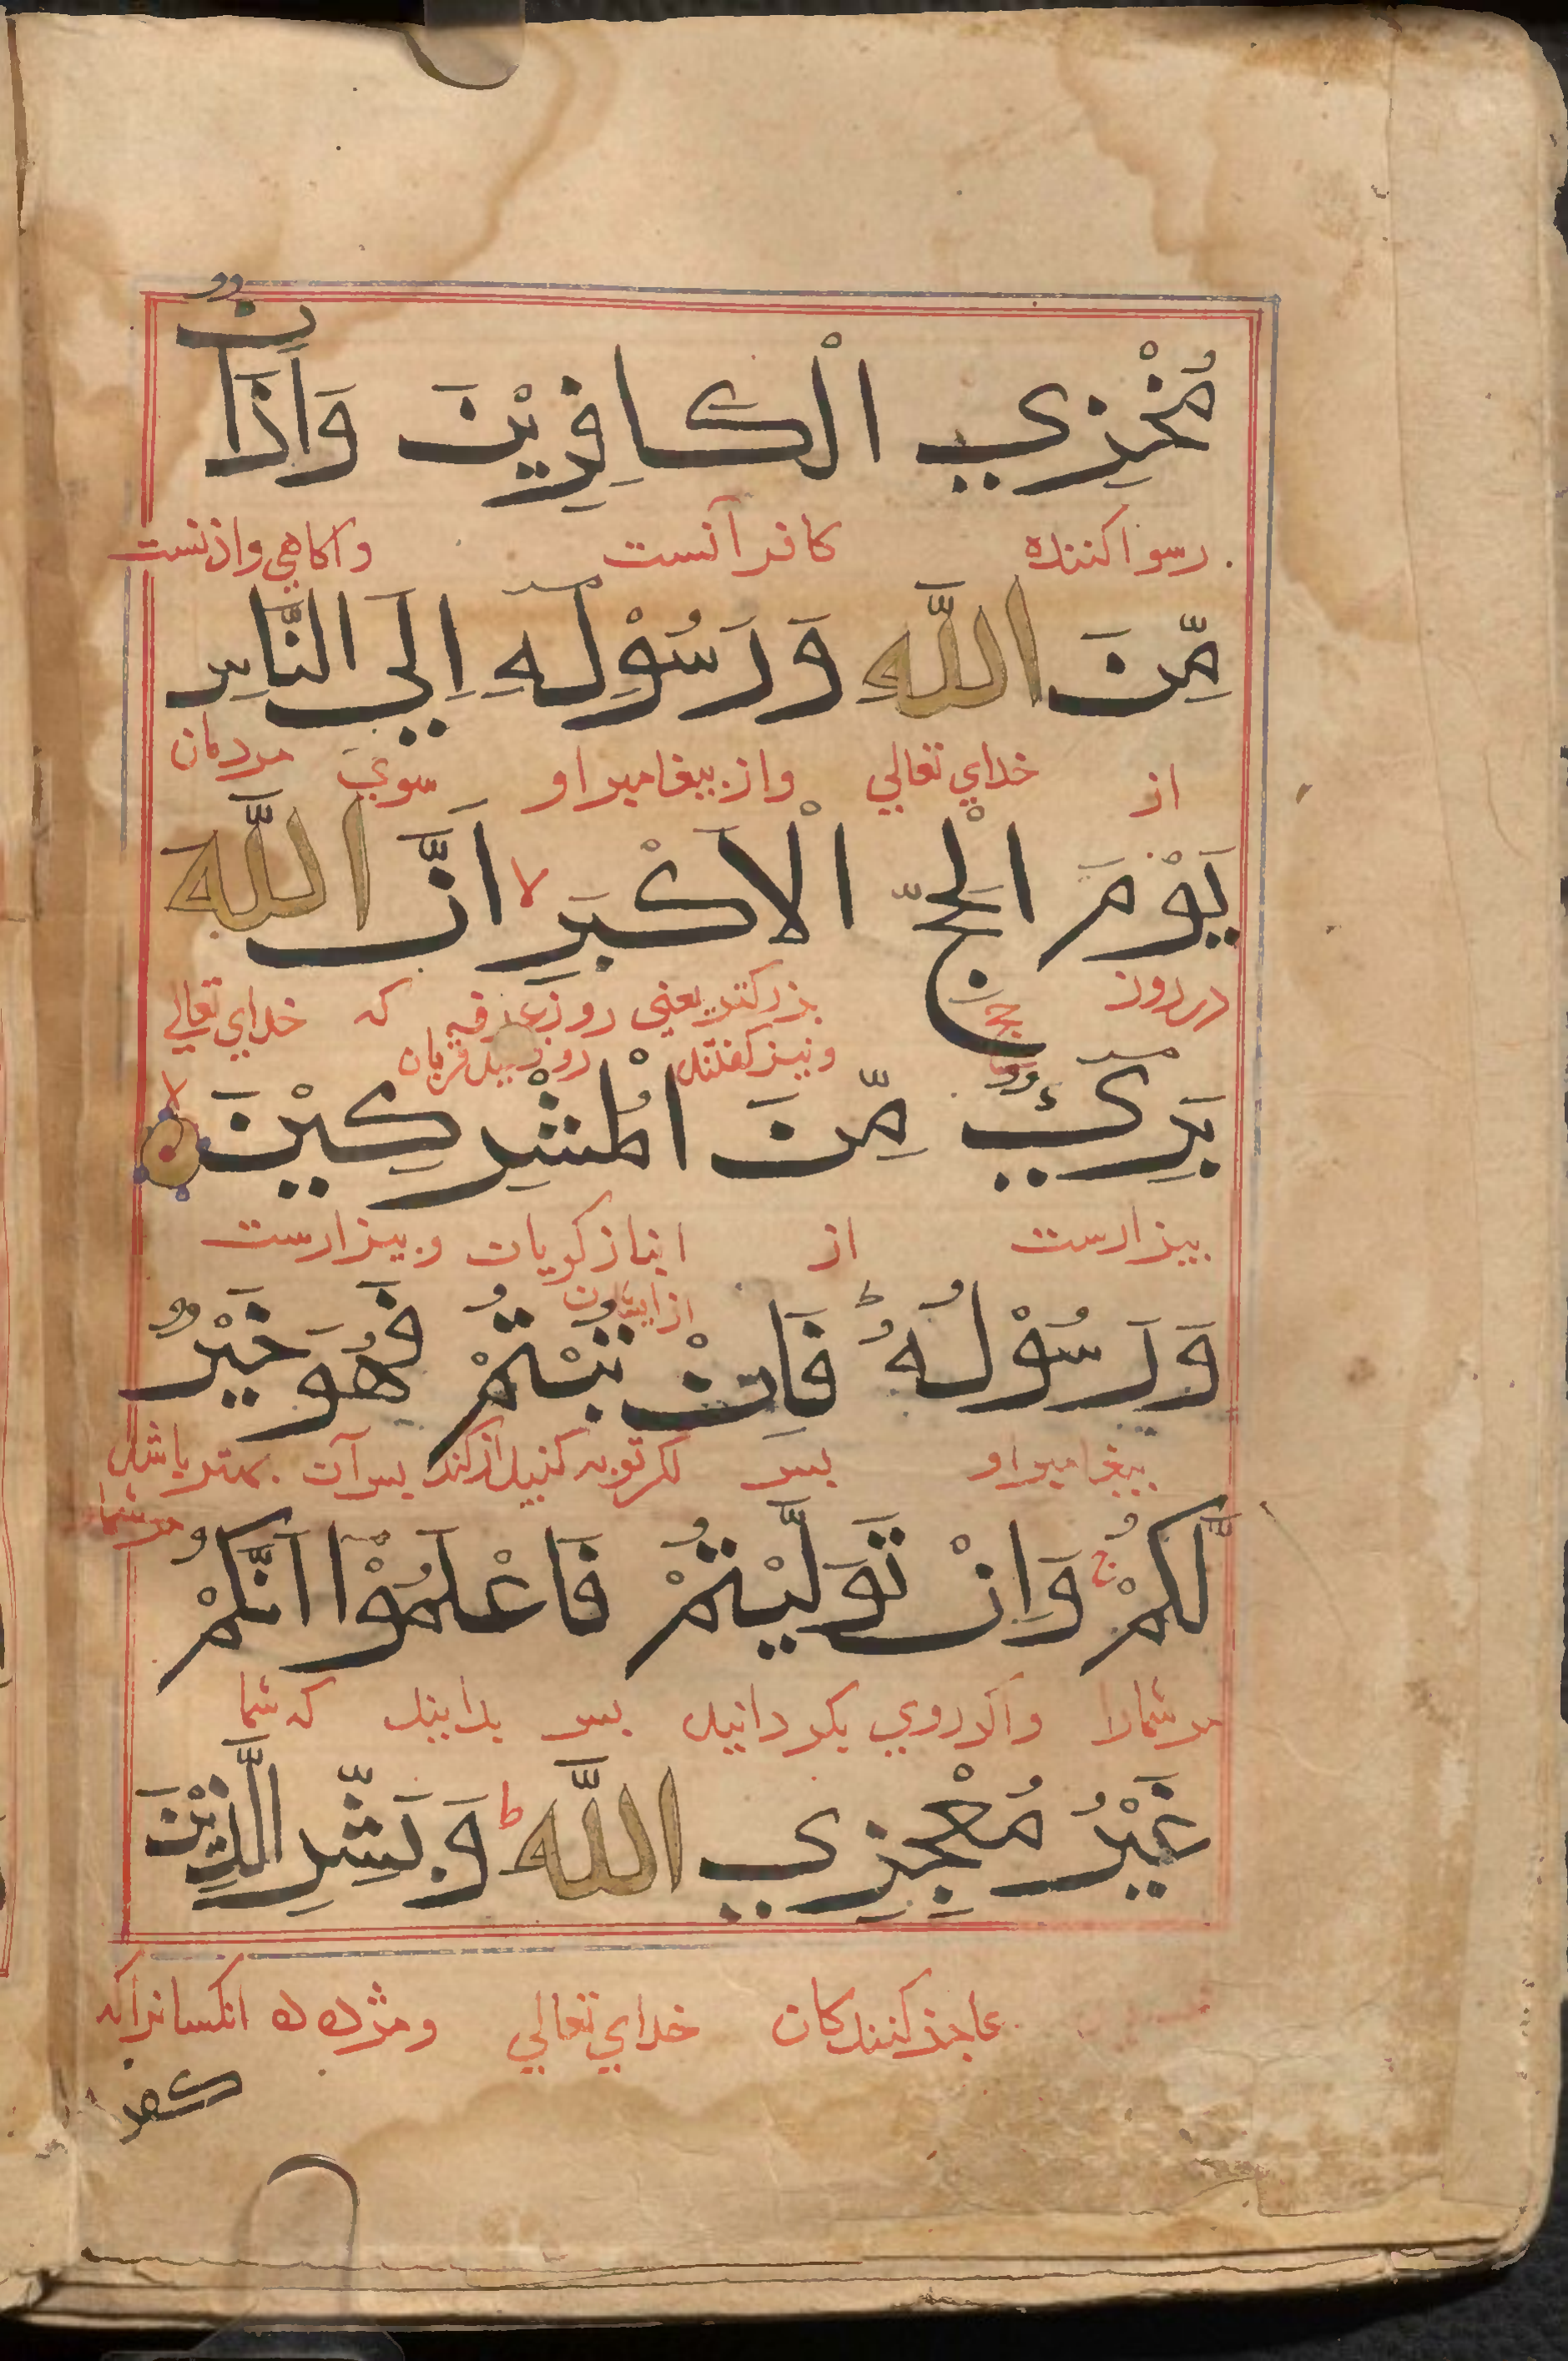 مُخْزِي الْكَافِرِيْنَ وَاَذَانٌ
رسوا كننده كافرآنست وآكاهي واذنست
مِّنَ اللّٰهِ وَرَسُوْلِهٖٓ اِلَي النَّاسِ
از خداي تعالي واز بيغامبر او سوي مردمان
يَوْمَ الْحَجِّ الْاَكْبَرِ لا اَنَّ اللّٰهَ
در روز حج بزركتر يعني روز عرفه كه خداي تعالي
ونيز كفتند روز عيد قربان
بَرِيٓءٌ مِّنَ الْمُشْرِكِيْنَ لا
بيزارست از انباز كويان وبيزارست
از ايشان
وَرَسُوْلُهٗ ط فَاِنْ تُبْتُمْ فَهُوَ خَيْرٌ
بيغامبر او بس اكر توبه كنيد از كفر بس آن بهتر باشد
مر شمارا
لَّكُمْ ج وَاِنْ تَوَلَّيْتُمْ فَاعْلَمُوْٓا اَنَّكُمْ
مر شمارا واكر روي بكردانيد بس بدانيد كه شما
غَيْرُ مُعْجِزِي اللّٰهِ ط وَبَشِّرِ الَّذِيْنَ
عاجز كنندكان خداي تعالي ومژده ده انكسانراكه
كفرو